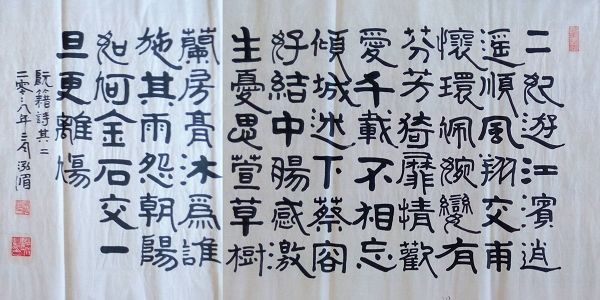 二妃遊江濱逍
遥順風翔交甫
懷環佩婉孌有
芬芳猗靡情歡
愛千載不相忘
傾城迷下蔡容
好結中腸感激
生憂思萱草樹
蘭房膏沐爲誰
施其雨怨朝陽
如何金石交一
旦更離傷
阮籍詩其二
二零一八年二月